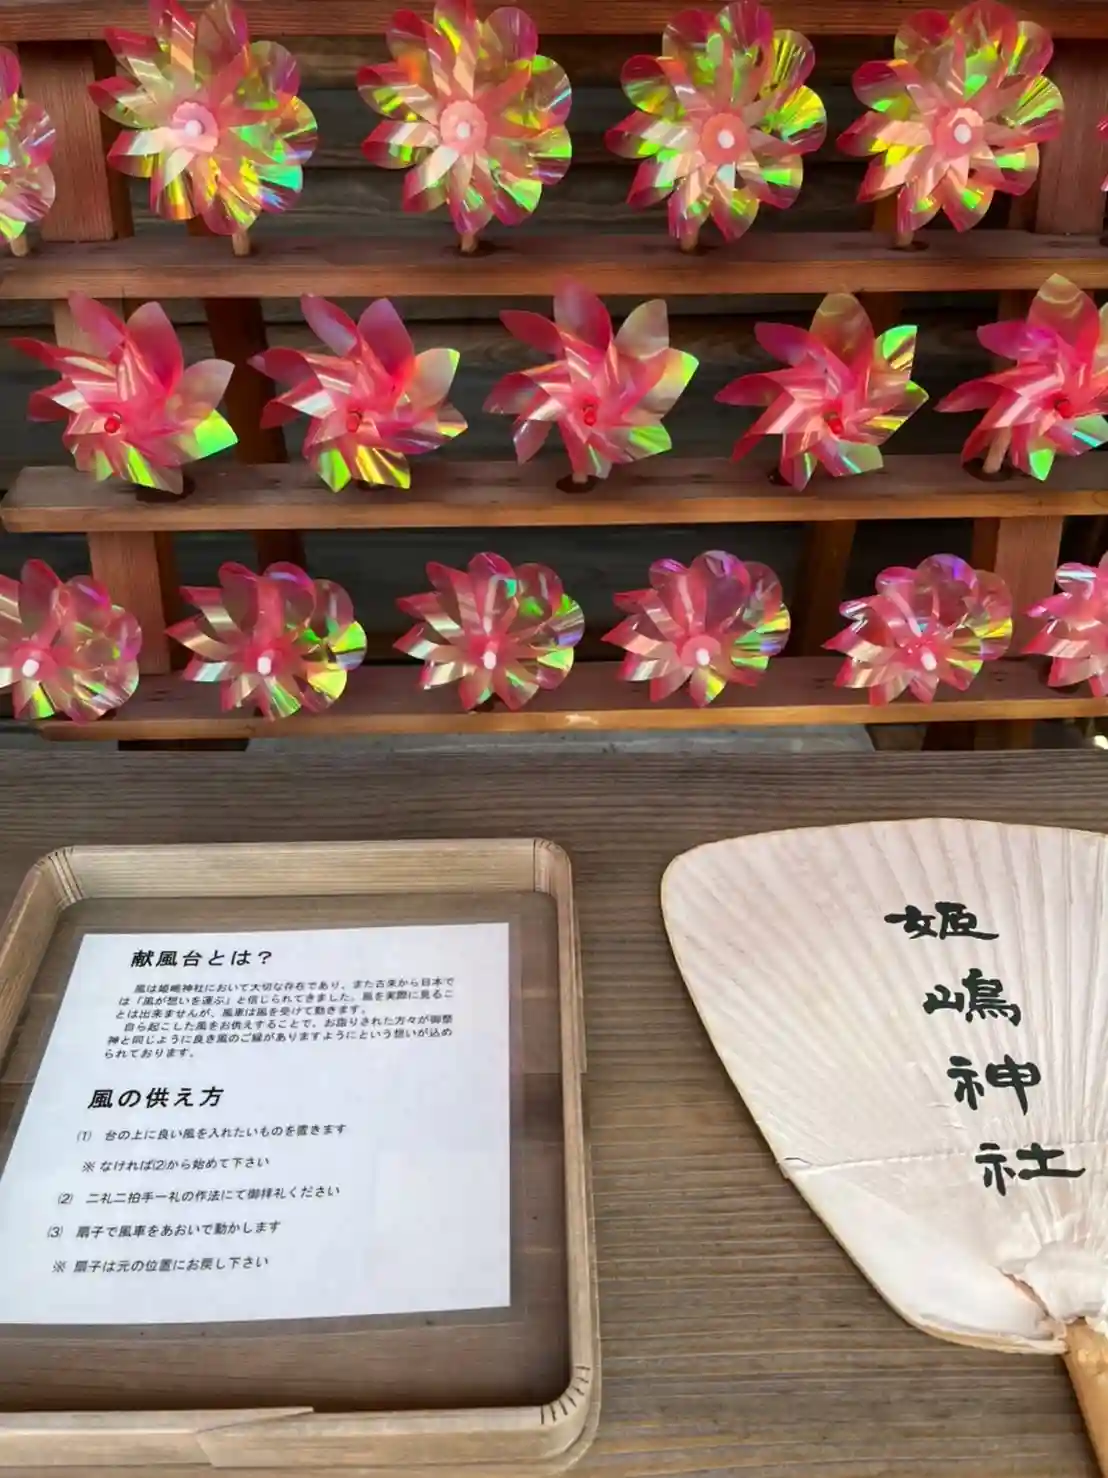 献風台とは？
風は姫嶋神社において大切な存在であり、また古来から日本で
は「風が想いを運ぶ」と信じられてきました。風を実際に見るこ
とは出来ませんが、風車は風を受けて動きます。
自ら起こした風をお供えすることで、お詣りされた方々が御祭
神と同じように良き風のご縁がありますようにという想いが込め
られております。
風の供え方
⑴ 台の上に良い風を入れたいものを置きます
※ なければ⑵から始めて下さい
⑵ 二礼二拍手一礼の作法にて御拝礼ください
⑶ 扇子で風車をあおいで動かします
※ 扇子は元の位置にお戻し下さい
姫嶋神社